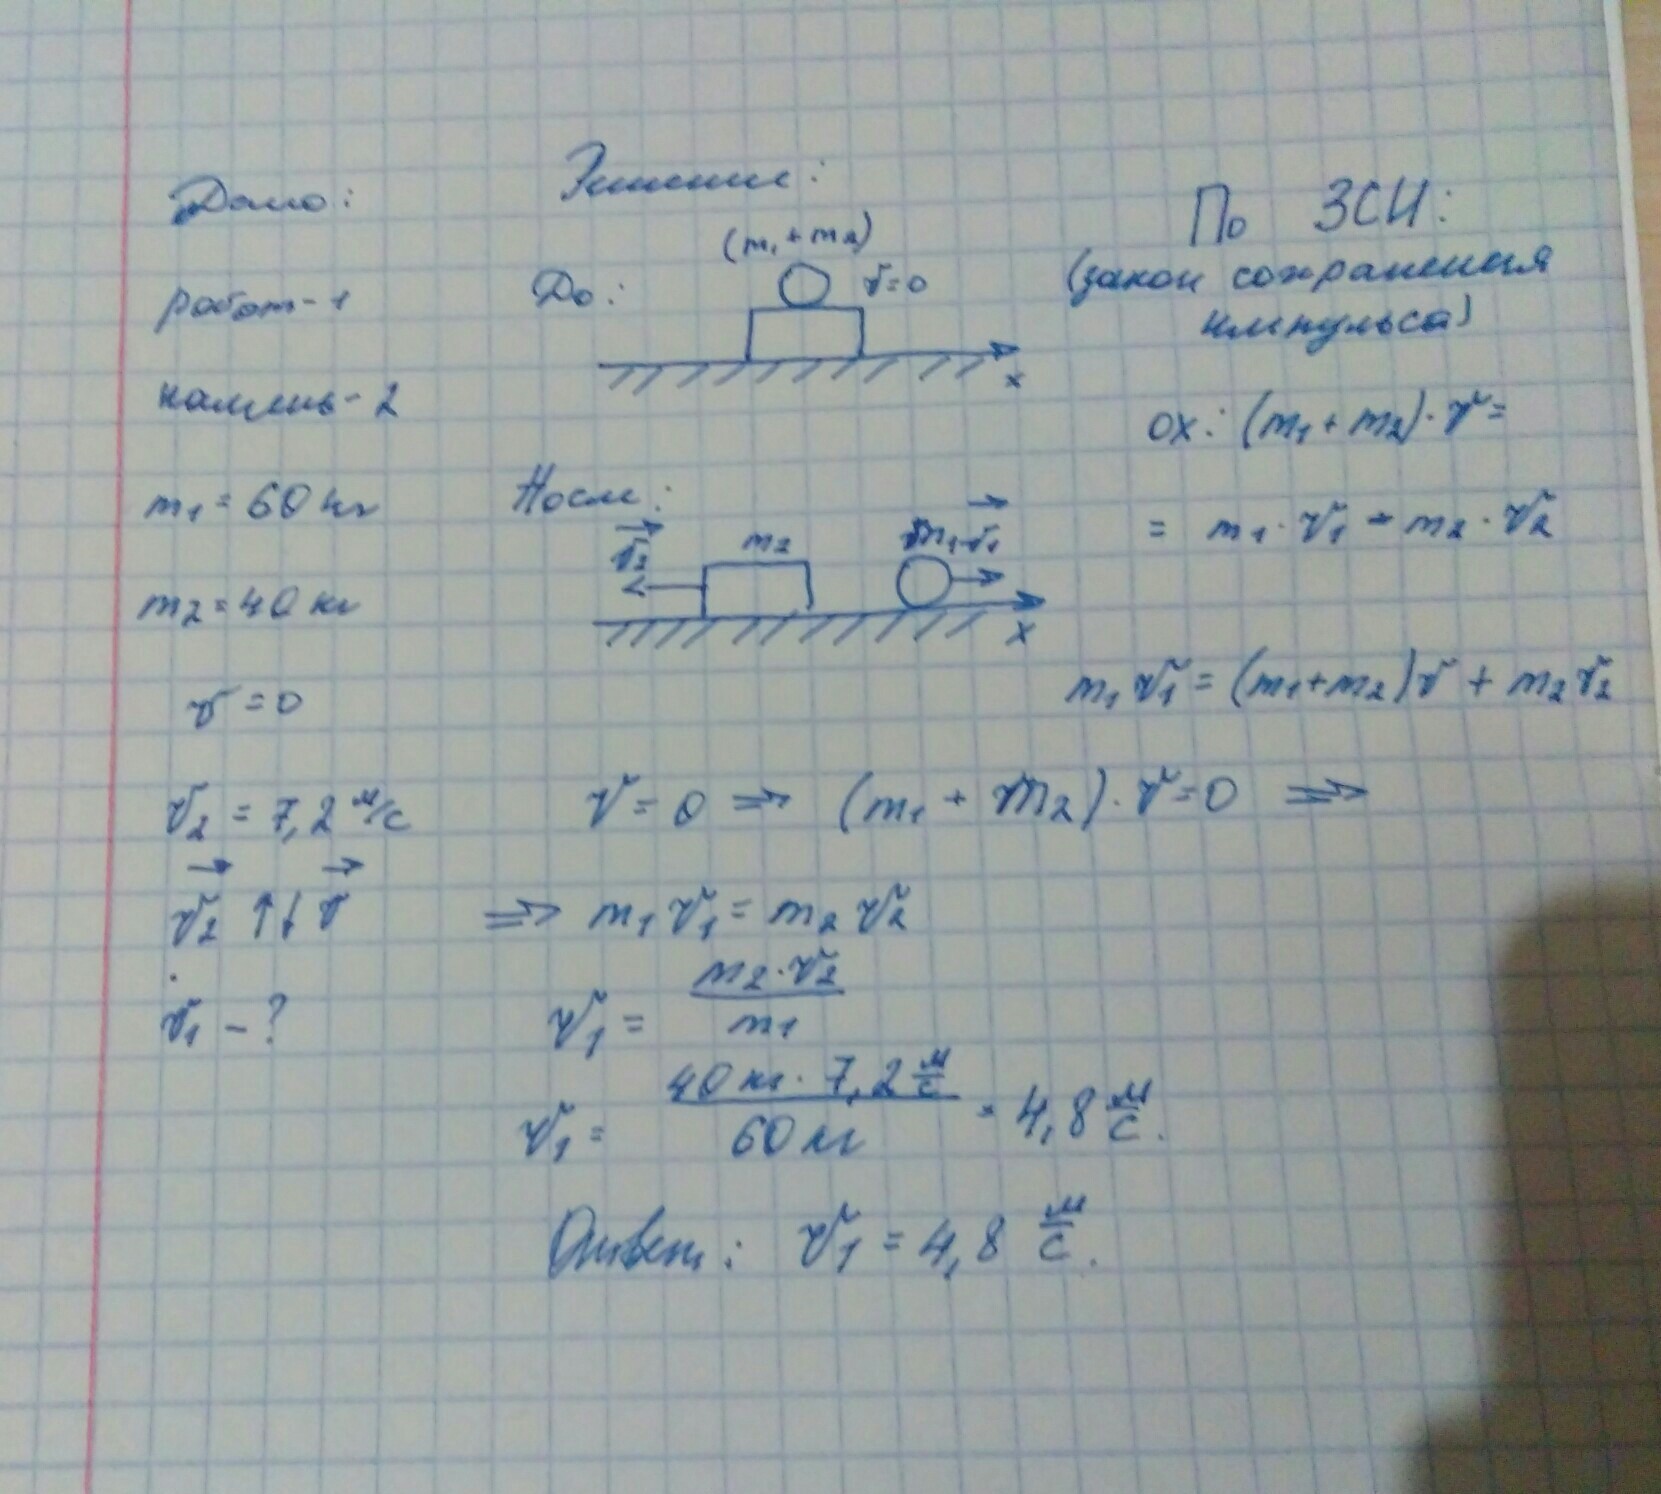 Дано:
робот - 1
камень - 2
m₁ = 60 кг
m₂ = 40 кг
v = 0
v₂ = 7,2 м/с
v₂ ↑↓ v
v₁ - ?
Решение:
До:
(m₁ + m₂)
v = 0
x
После:
v₂
m₂
m₁ v₁
x
По ЗСИ:
(закон сохранения
импульса)
ox: (m₁ + m₂) · v =
= m₁ · v₁ - m₂ · v₂
m₁v₁ = (m₁ + m₂)v + m₂v₂
v = 0 => (m₁ + m₂) · v = 0 =>
=> m₁v₁ = m₂v₂
v₁ = m₂ · v₂ / m₁
v₁ = 40 кг · 7,2 м/с / 60 кг = 4,8 м/с.
Ответ: v₁ = 4,8 м/с.